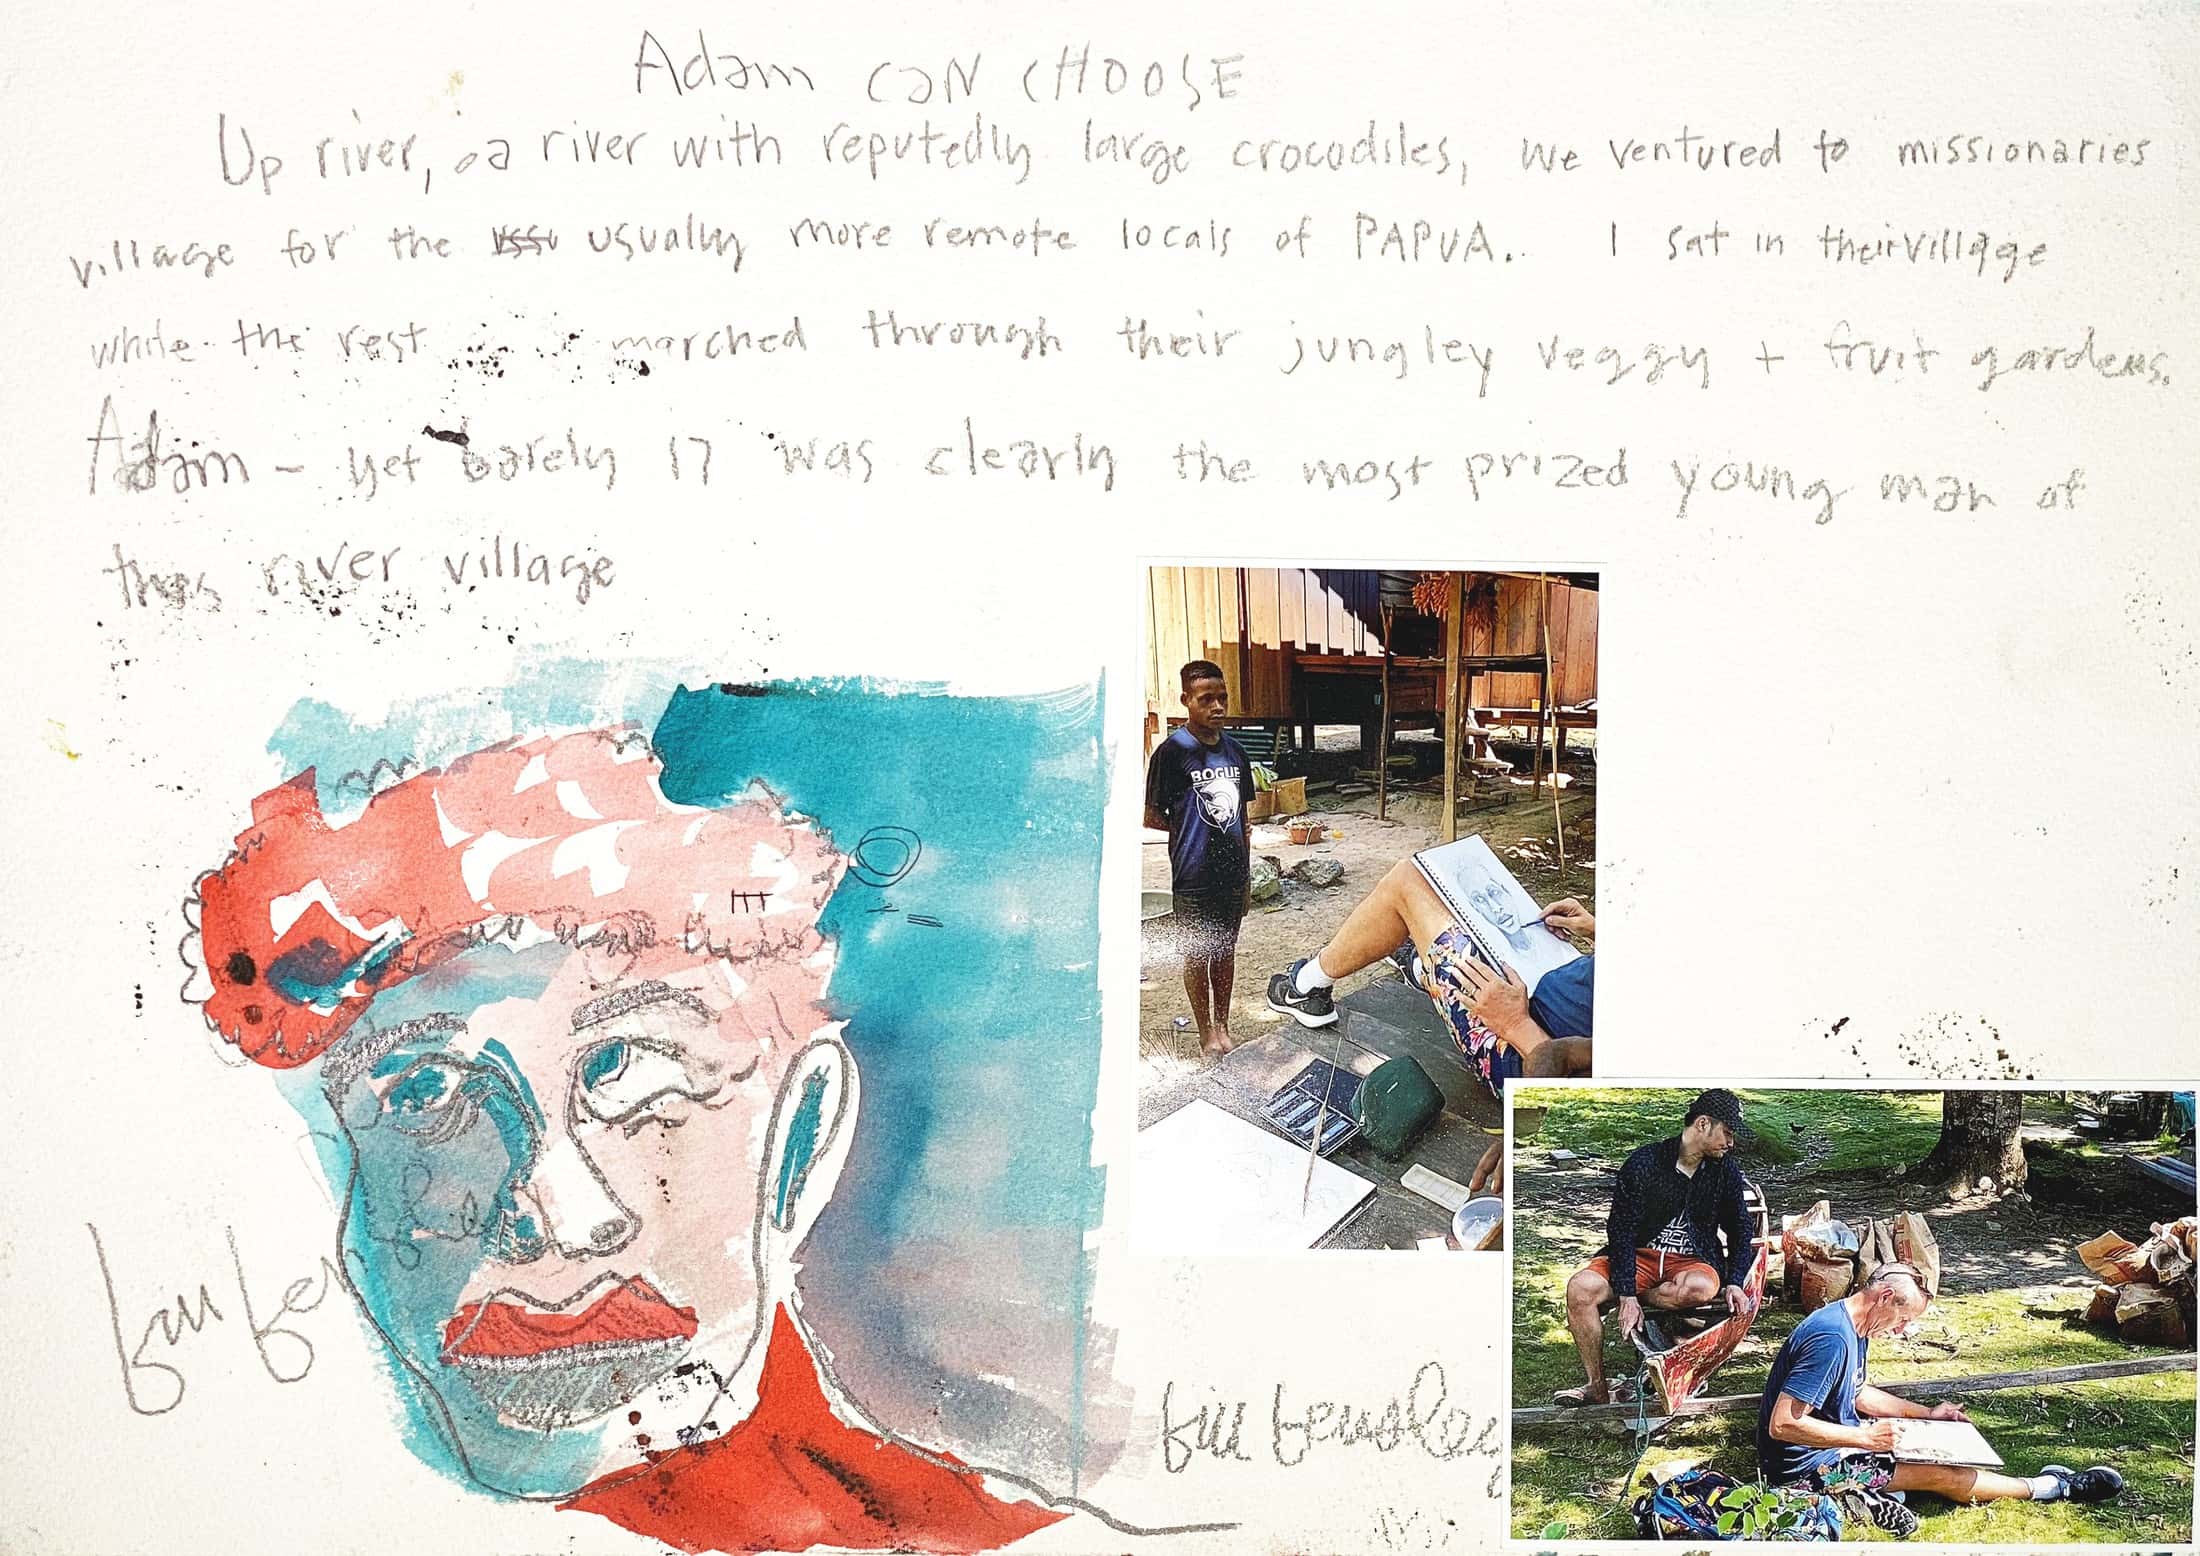 Adam CAN CHOOSE
Up river, a river with reputedly large crocodiles, we ventured to missionaries
village for the usually more remote locals of PAPUA. I sat in their village
while the rest marched through their jungley veggy + fruit gardens.
Adam - yet barely 17 was clearly the most prized young man of
this river village
BOGUE
Bill Ben
Bill Bensley